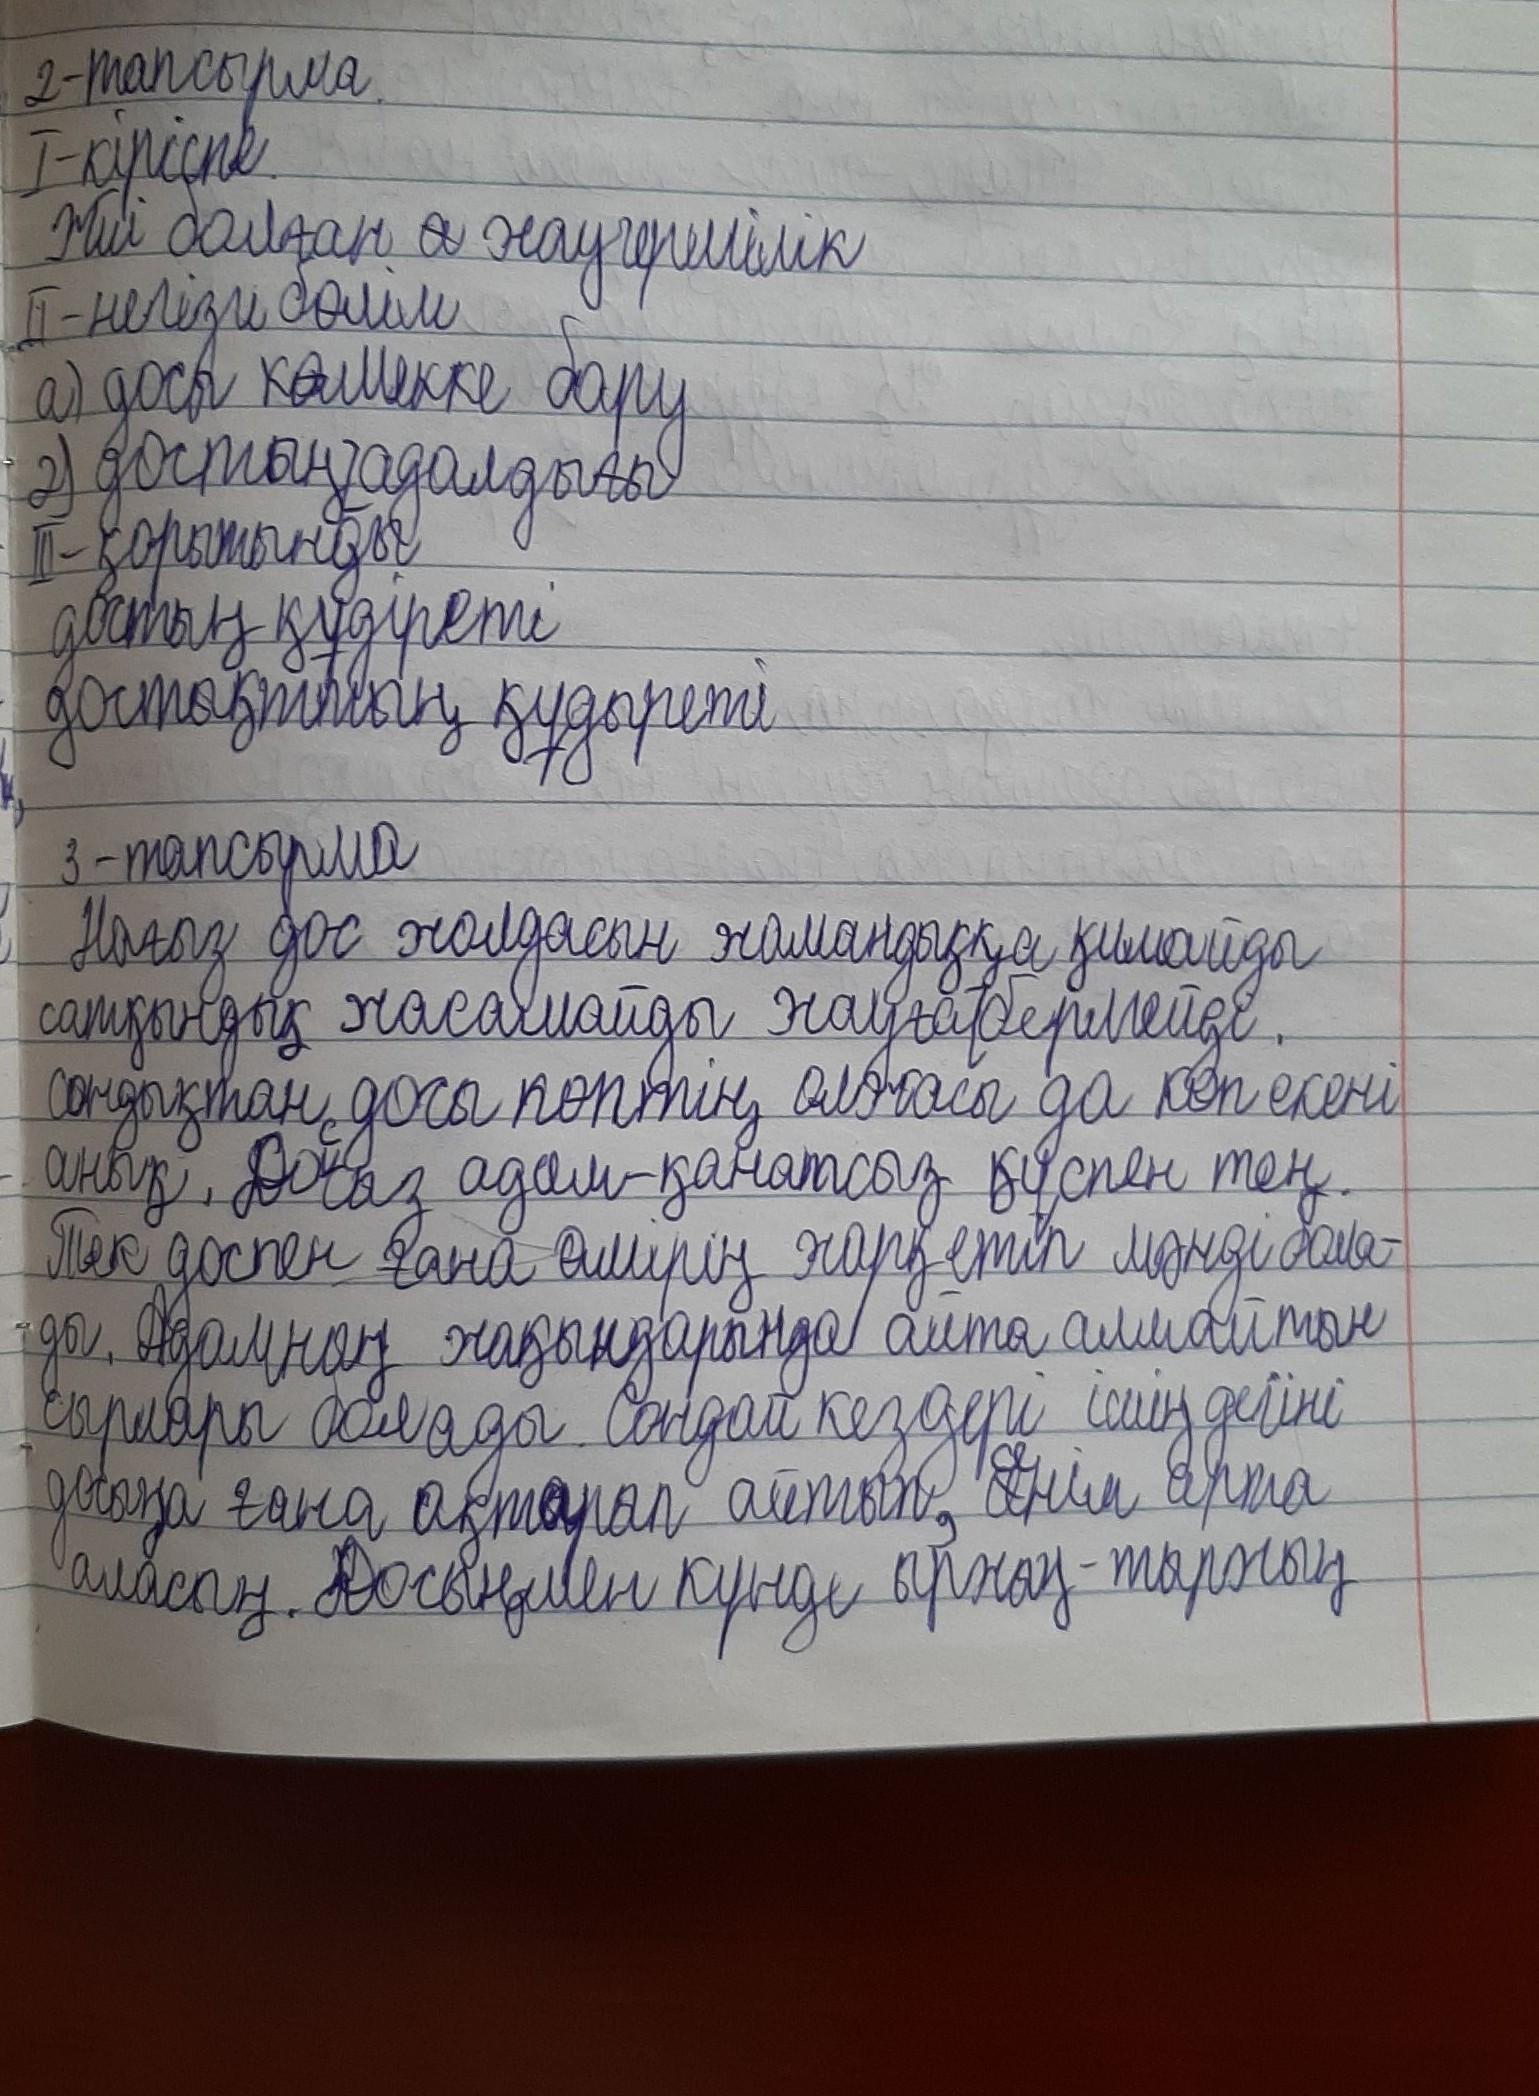 2-тапсырма.
I-кіріспе.
Жиі болған жаугершілік
II-негізги бөлім
а) досы көмекке бару
2) достың адалдығы
III-қорытынды
достың құдіреті
достақтың құдыреті
3-тапсырма
Нағыз дос жолдасын жамандыққа қимайды
сатқындық жасамайды жауға бермейді.
сондықтан, досы көптің олжасы да көп екені
анық. Доссыз адам-қанатсыз құспен тең.
Тек доспен ғана өмірің жарқ етіп мәнді бола-
ды. Адамның жақындарында айта алмайтын
сырлары болады. Сондай кездері ішіңдегіні
досыңа ғана ақтарап айтып, сенім арта
аласың. Досыңмен күнде ыржың-тыржың